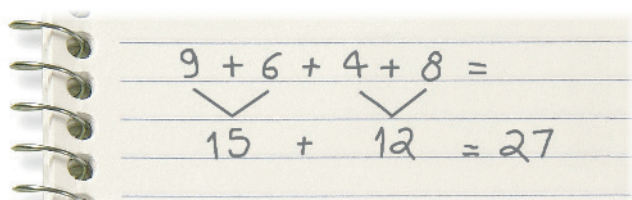 9 + 6 + 4 + 8 =
15 + 12 = 27